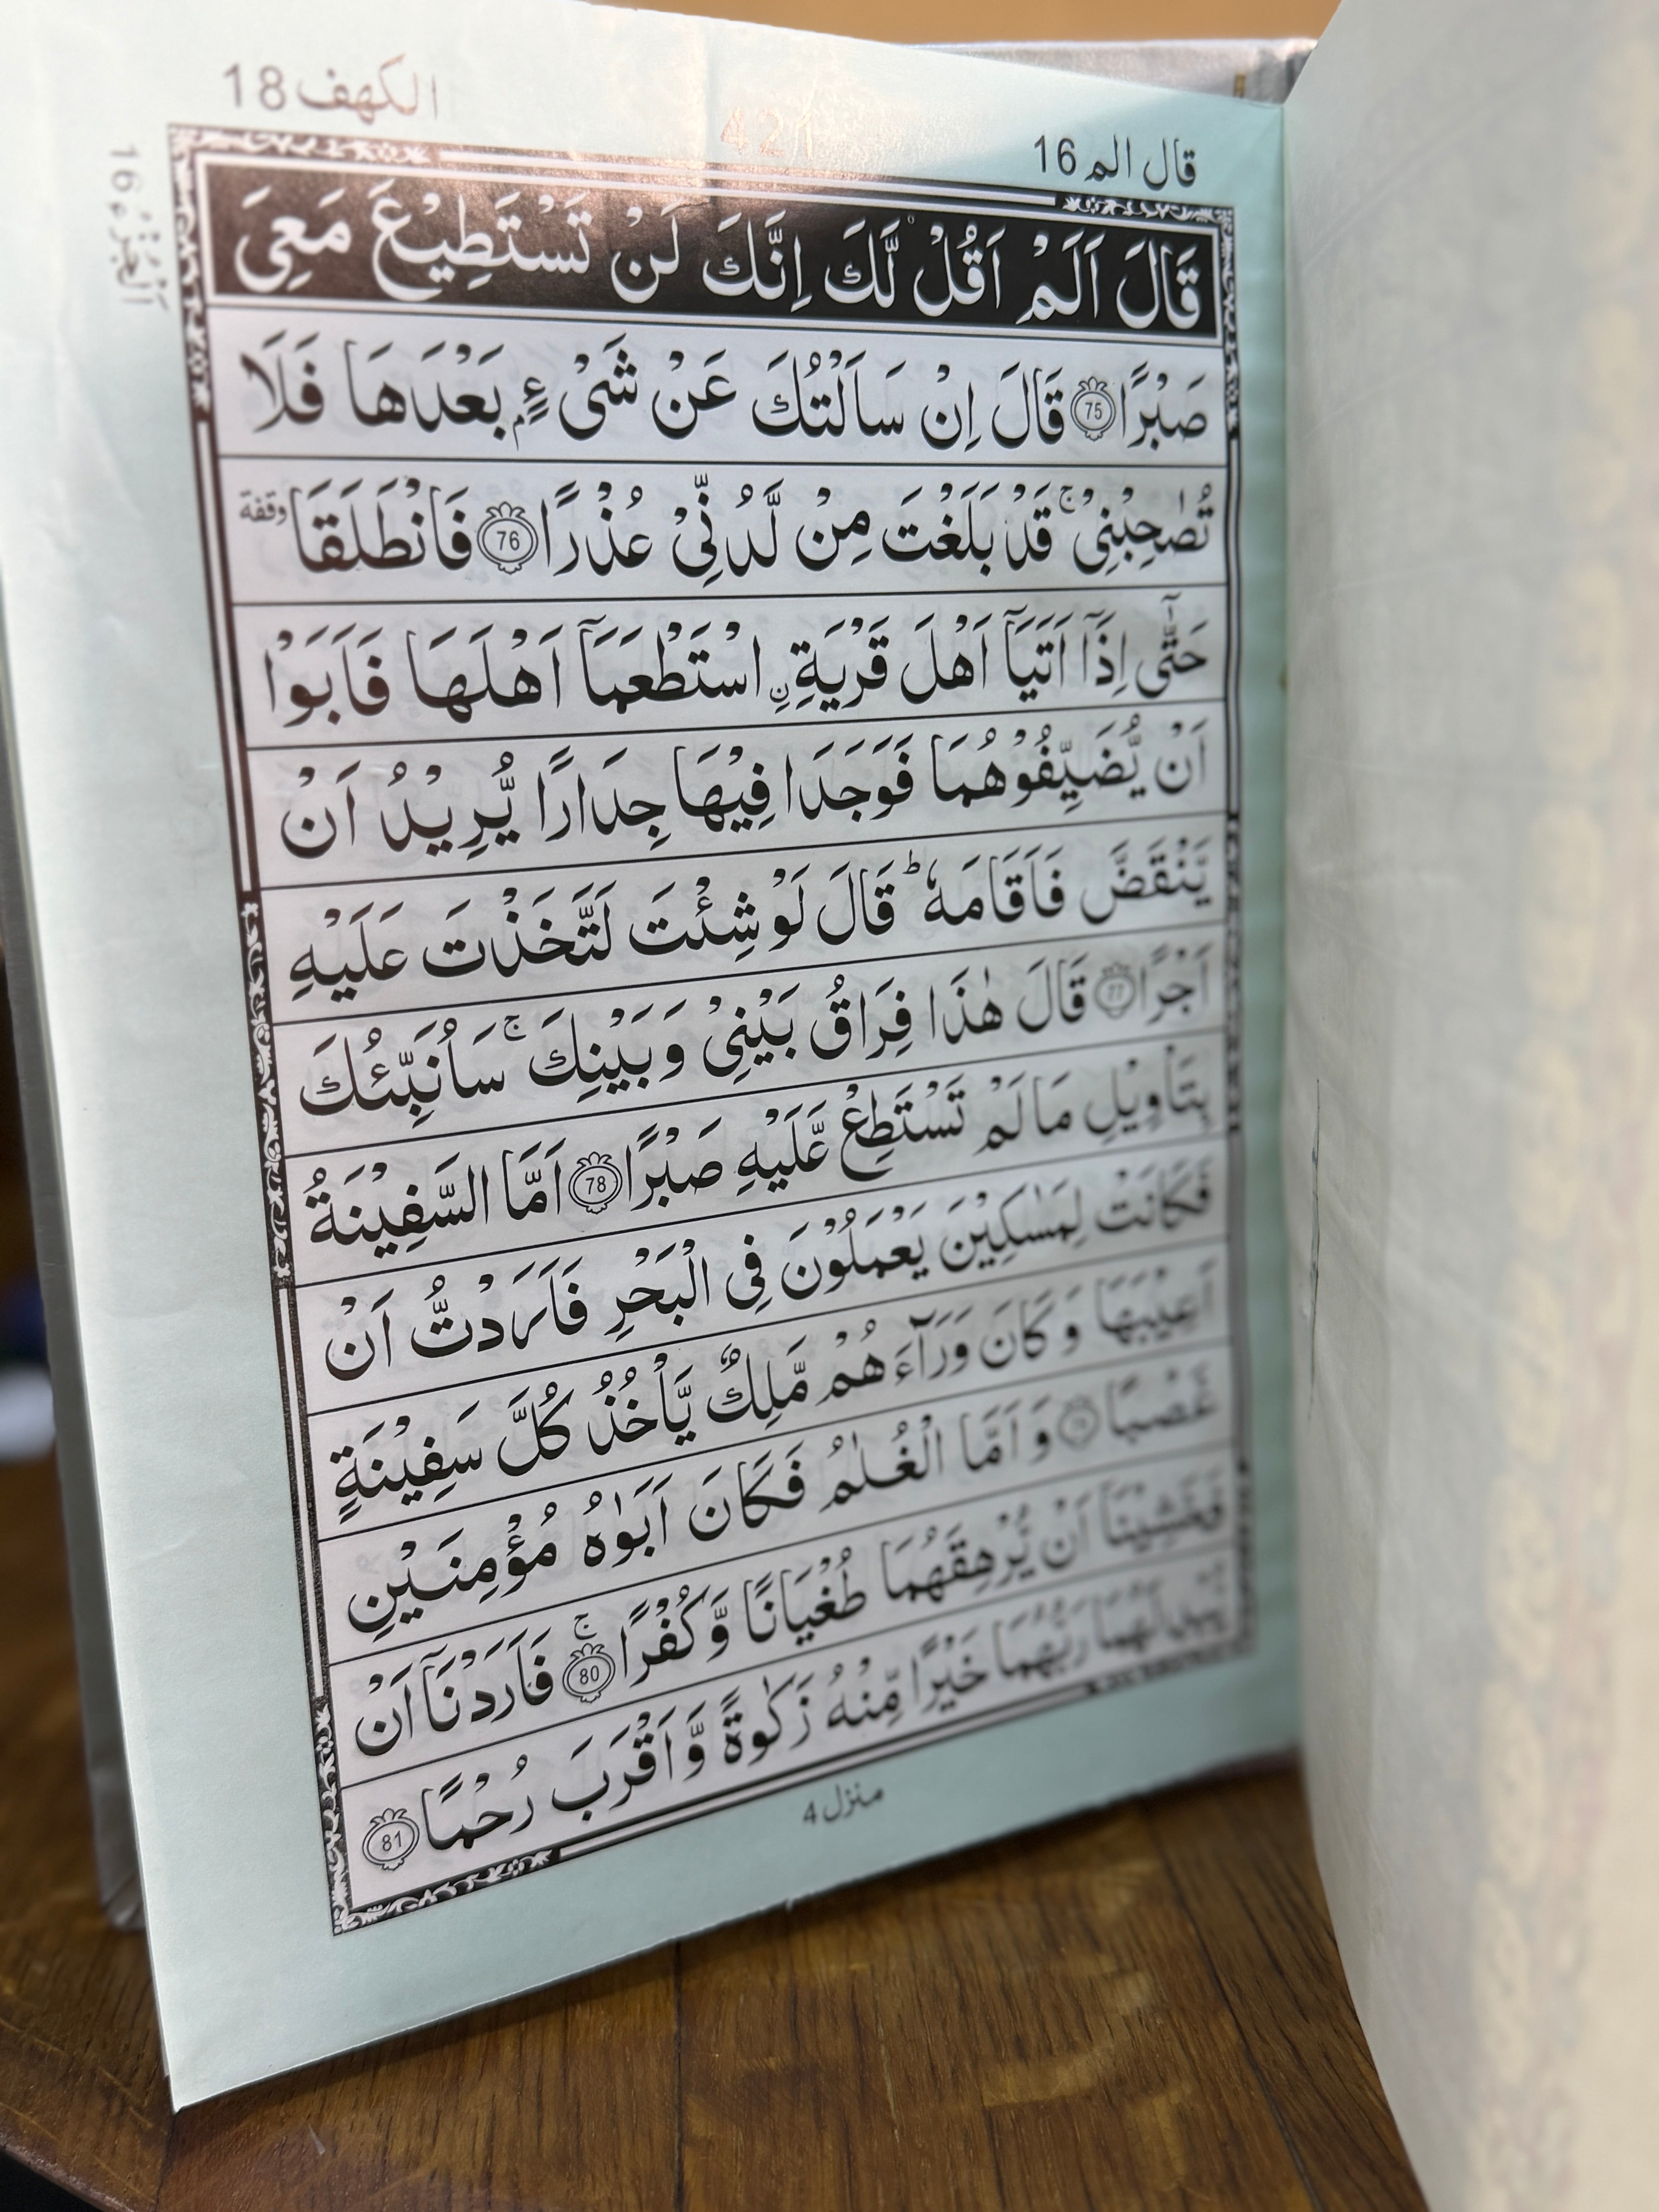 الكهف 18
421
قال الم 16
الجزء 16
قَالَ اَلَمْ اَقُلْ لَّكَ اِنَّكَ لَنْ تَسْتَطِيْعَ مَعِىَ
صَبْرًا 75 قَالَ اِنْ سَاَلْتُكَ عَنْ شَىْءٍۭ بَعْدَهَا فَلَا
تُصٰحِبْنِىْ ۚ قَدْ بَلَغْتَ مِنْ لَّدُنِّىْ عُذْرًا 76 فَانْطَلَقَا وقفة
حَتّٰٓى اِذَآ اَتَيَآ اَهْلَ قَرْيَةِ ِۨ اسْتَطْعَمَآ اَهْلَهَا فَاَبَوْا
اَنْ يُّضَيِّفُوْهُمَا فَوَجَدَا فِيْهَا جِدَارًا يُّرِيْدُ اَنْ
يَّنْقَضَّ فَاَقَامَهٗ ؕ قَالَ لَوْ شِئْتَ لَتَّخَذْتَ عَلَيْهِ
اَجْرًا 77 قَالَ هٰذَا فِرَاقُ بَيْنِىْ وَبَيْنِكَ ۚ سَاُنَبِّئُكَ
بِتَاْوِيْلِ مَا لَمْ تَسْتَطِعْ عَّلَيْهِ صَبْرًا 78 اَمَّا السَّفِيْنَةُ
فَكَانَتْ لِمَسٰكِيْنَ يَعْمَلُوْنَ فِى الْبَحْرِ فَاَرَدْتُّ اَنْ
اَعِيْبَهَا وَكَانَ وَرَآءَهُمْ مَّلِكٌ يَّاْخُذُ كُلَّ سَفِيْنَةٍ
غَصْبًا 79 وَاَمَّا الْغُلٰمُ فَكَانَ اَبَوٰهُ مُؤْمِنَيْنِ
فَخَشِيْنَآ اَنْ يُّرْهِقَهُمَا طُغْيَانًا وَّكُفْرًا ۚ 80 فَاَرَدْنَآ اَنْ
يُّبْدِلَهُمَا رَبُّهُمَا خَيْرًا مِّنْهُ زَكٰوةً وَّاَقْرَبَ رُحْمًا 81
منزل 4